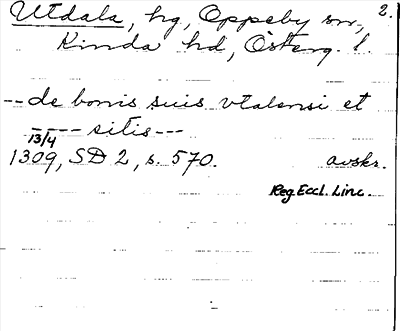 Utdala, hg, Oppeby sn, 2.
Kinda hd, Österg. l.
--de bonis suis vtalensi et
---- sitis---
13/4
1309, SD 2, s. 570. avskr.
Reg Eccl. Linc.